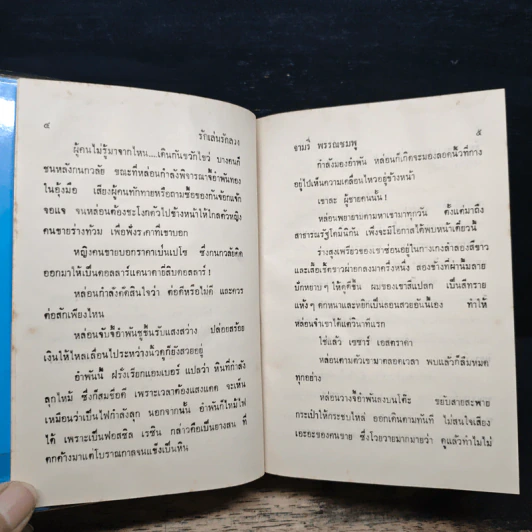 ๔
รักเล่นรักลวง
ผู้คนไม่รู้มาจากไหน....เดินกันขวักไขว่ บางคนก็
ชนหลังกนกวลัย ขณะที่หล่อนกำลังพิจารณาจี้อำพันทอง
ในอุ้งมือ เสียงผู้คนทักทายหรือถามซื้อของกันจ๊อกแจ๊ก
จอแจ จนหล่อนต้องชะโงกตัวไปข้างหน้าให้ใกล้ตัวหญิง
คนขายร่างท้วม เพื่อฟังราคาที่เขาบอก
หญิงคนขายบอกราคาเป็นเปโซ ซึ่งกนกวลัยคิด
ออกมาให้เป็นดอลลาร์แคนาดายี่สิบดอลลาร์ !
หล่อนกำลังตัดสินใจว่า ต่อดีหรือไม่ดี และควร
ต่อสักเพียงไหน
หล่อนจับจี้อำพันชูขึ้นรับแสงสว่าง ปล่อยสร้อย
เงินให้ไหลเลื่อนไประหว่างนิ้วดูก็ยังสวยอยู่
อำพันนี้ ฝรั่งเรียกแอมเบอร์ แปลว่า หินที่กำลัง
ลุกไหม้ ซึ่งก็สมชื่อดี เพราะเวลาต้องแสงแดด จะเห็น
เหมือนว่าเป็นไฟกำลังลุก นอกจากนั้น อำพันก็ไหม้ไฟ
ได้ เพราะเป็นฟอสซิล เรซิน กล่าวคือเป็นยางสน ที่
ตกค้างมาแต่โบราณกาลจนแข็งเป็นหิน
อามรี พรรณชมพู
๕
กำลังมองอำพัน หล่อนก็เกิดจะมองลอดนิ้วที่กาง
อยู่ไปเห็นความเคลื่อนไหวอยู่ข้างหน้า
เขาละ ผู้ชายคนนั้น !
หล่อนพยายามตามหาเขามาทุกวัน ตั้งแต่มาถึง
สาธารณรัฐโดมินิกัน เพิ่งจะมีโอกาสได้พบหน้าเดี๋ยวนี้
ร่างสูงเพรียวของเขาซ่อนอยู่ในกางเกงลำลองสีขาว
และเสื้อเชิ้ตขาวผ่ากลางมาครึ่งหนึ่ง สองข้างที่ผ่านั้นลาย
ปักหยาบ ๆ ให้ดูดีขึ้น ผมของเขาสีแปลก เป็นสีทราย
แห้ง ๆ ตกหนาและหยิกเป็นลอนสวยอันนี้เอง ทำให้
หล่อนจำเขาได้แต่วินาทีแรก
ใช่แล้ว เซซาร์ เอสตราด้า
หล่อนตามตัวเขามาตลอดเวลา พบแล้วก็ลืมหมด
ทุกอย่าง
หล่อนวางจี้อำพันลงบนโต๊ะ ขยับสายสะพาย
กระเป๋าให้กระชบไหล่ ออกเดินตามทันที ไม่สนใจเสียง
เอะอะของคนขาย ซึ่งโวยวายมากมายว่า ดูแล้วทำไมไม่